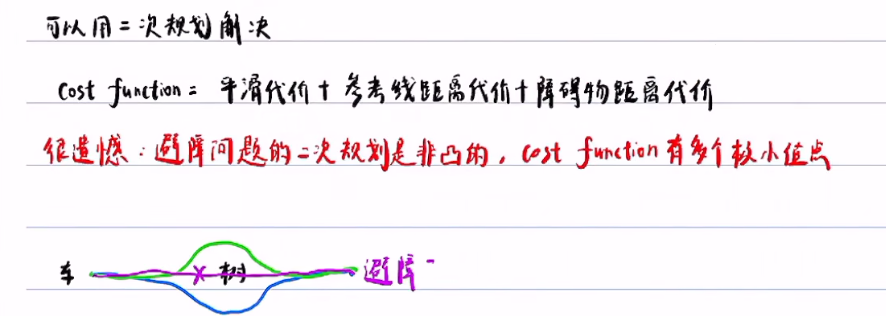 可以用二次规划解决
cost function = 平滑代价 + 参考线距离代价 + 障碍物距离代价
很遗憾：避障问题的二次规划是非凸的，cost function 有多个极小值点
车 树 避障